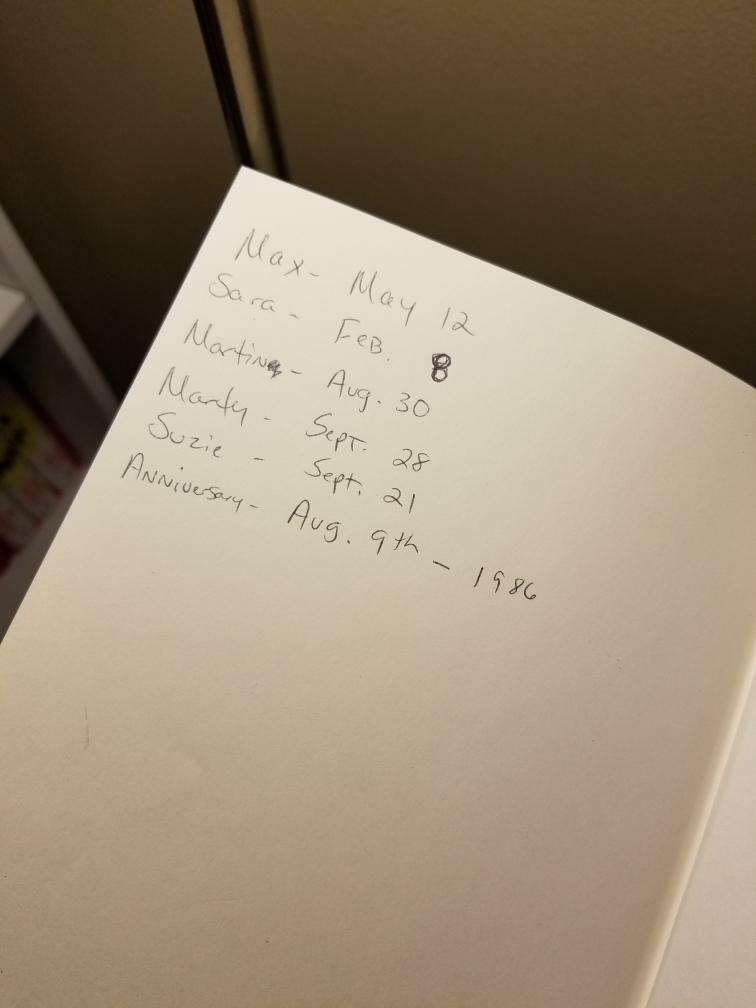 Max - May 12
Sara - Feb. 8
Martina - Aug. 30
Mardy - Sept. 28
Suzie - Sept. 21
Anniversary - Aug. 9th - 1986